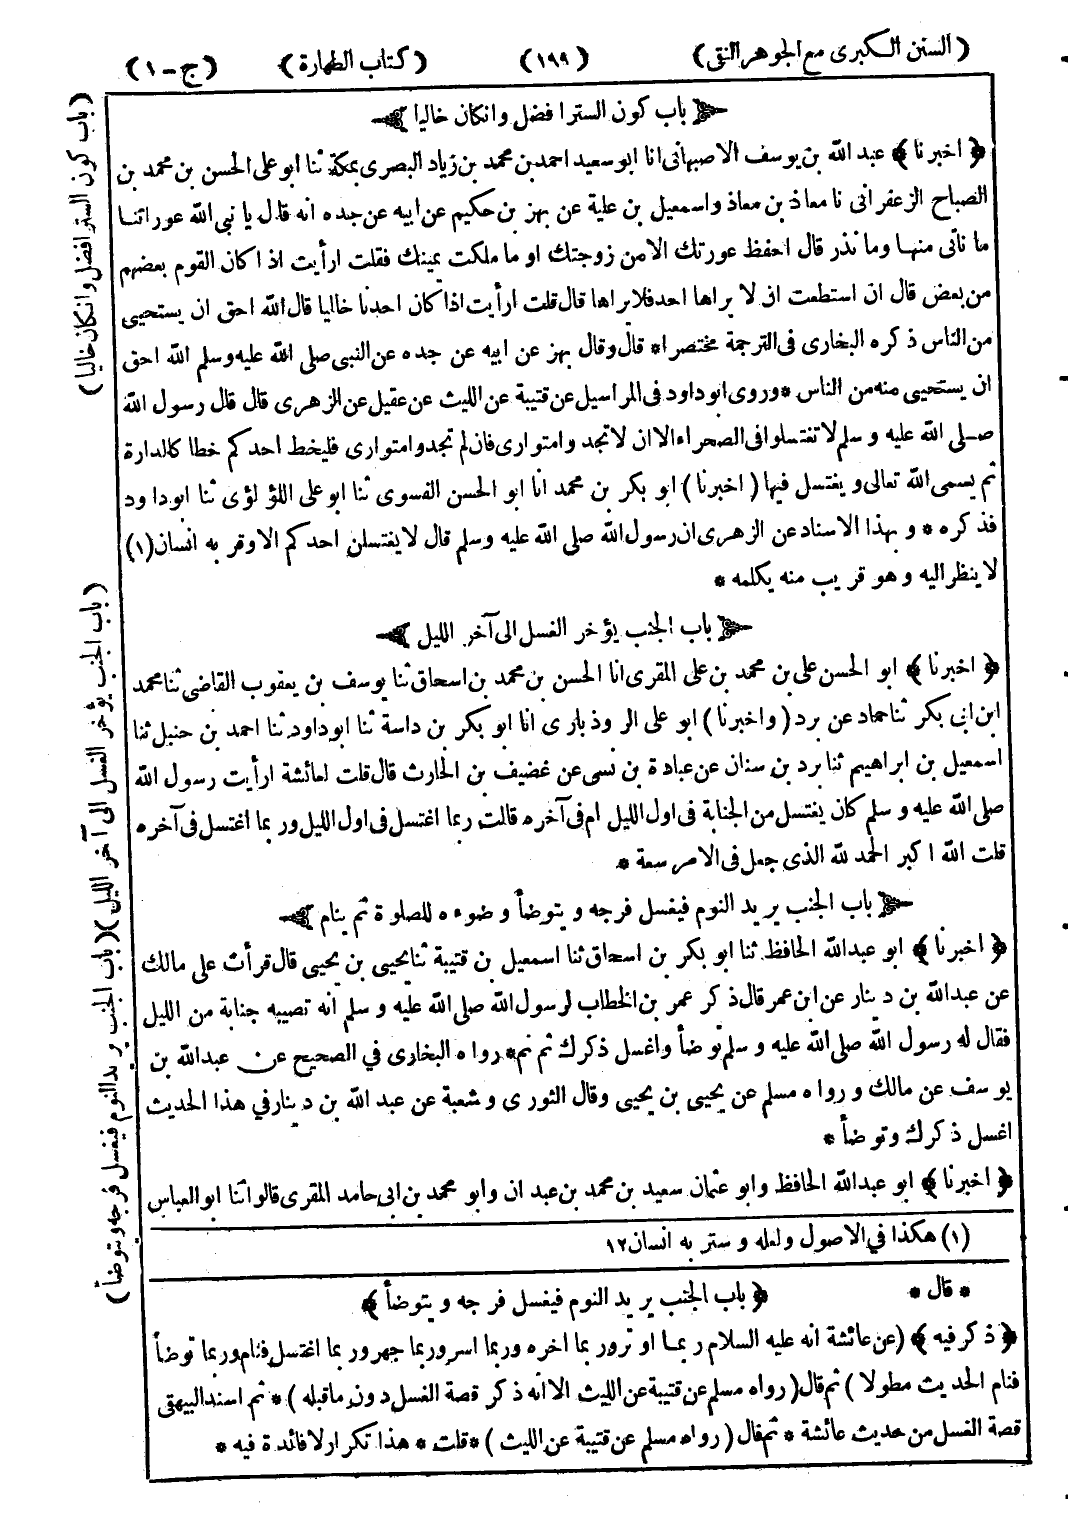 (السنن الكبرى مع الجوهر النقى) (١٩٩) (كتاب الطهارة) (ج-١)
باب كون الستر افضل وانكان خاليا
﴿ اخبرنا ﴾ عبد الله بن يوسف الاصبهانى انا ابو سعيد احمد بن محمد بن زياد البصرى بمكة ثنا ابو على الحسن بن محمد بن
الصباح الزعفرانى نا معاذ بن معاذ واسمعيل بن علية عن بهز بن حكيم عن ابيه عن جده انه قال يا نبى الله عوراتنا
ما ناتى منها وما نذر قال احفظ عورتك الا من زوجتك او ما ملكت يمينك فقلت ارأيت اذا كان القوم بعضهم
من بعض قال ان استطعت ان لا يراها احد فلا يراها قال قلت ارأيت اذا كان احدنا خاليا قال الله احق ان يستحيى
من الناس ذكره البخارى فى الترجمة مختصرا * قال وقال بهز عن ابيه عن جده عن النبى صلى الله عليه وسلم الله احق
ان يستحيى منه من الناس * وروى ابو داود فى المراسيل عن قتيبة عن الليث عن عقيل عن الزهرى قال قال رسول الله
صلى الله عليه وسلم لا تغتسلوا فى الصحراء الا ان لا تجدوا متوارى فان لم تجدوا متوارى فليخط احدكم خطا كالدارة
ثم يسمى الله تعالى ويغتسل فيها (اخبرنا) ابو بكر بن محمد انا ابو الحسن الفسوى ثنا ابو على اللؤلؤى ثنا ابو داود
فذكره * وبهذا الاسناد عن الزهرى ان رسول الله صلى الله عليه وسلم قال لا يغتسلن احدكم الا وقر به انسان (١)
لا ينظر اليه وهو قريب منه يكلمه *
باب الجنب يؤخر الغسل الى آخر الليل
﴿ اخبرنا ﴾ ابو الحسن على بن محمد بن على المقرى انا الحسن بن محمد بن اسحاق ثنا يوسف بن يعقوب القاضى ثنا محمد
ابن ابى بكر ثنا حماد عن برد (واخبرنا) ابو على الروذبارى انا ابو بكر بن داسة ثنا ابو داود ثنا احمد بن حنبل ثنا
اسمعيل بن ابراهيم ثنا برد بن سنان عن عبادة بن نسى عن غضيف بن الحارث قال قلت لعائشة ارأيت رسول الله
صلى الله عليه وسلم كان يغتسل من الجنابة فى اول الليل ام فى آخره قالت ربما اغتسل فى اول الليل وربما اغتسل فى آخره
قلت الله اكبر الحمد لله الذى جعل فى الامر سعة *
باب الجنب يريد النوم فيغسل فرجه ويتوضأ وضوءه للصلوة ثم ينام
﴿ اخبرنا ﴾ ابو عبد الله الحافظ ثنا ابو بكر بن اسحاق ثنا اسمعيل بن قتيبة ثنا يحيى بن يحيى قال قرأت على مالك
عن عبد الله بن دينار عن ابن عمر قال ذكر عمر بن الخطاب لرسول الله صلى الله عليه وسلم انه تصيبه جنابة من الليل
فقال له رسول الله صلى الله عليه وسلم توضأ واغسل ذكرك ثم نم * رواه البخارى في الصحيح عن عبد الله بن
يوسف عن مالك ورواه مسلم عن يحيى بن يحيى وقال الثورى وشعبة عن عبد الله بن دينار في هذا الحديث
اغسل ذكرك وتوضأ *
﴿ اخبرنا ﴾ ابو عبد الله الحافظ وابو عثمان سعيد بن محمد بن عبدان وابو محمد بن ابى حامد المقرى قالوا ثنا ابو العباس
(١) هكذا في الاصول ولعله وستر به انسان ١٢
* قال * ﴿ باب الجنب يريد النوم فيغسل فرجه ويتوضأ ﴾
﴿ ذكر فيه ﴾ (عن عائشة انه عليه السلام ربما اوتر وربما اخره وربما اسر وربما جهر وربما اغتسل فنام وربما توضأ
فنام الحديث مطولا) ثم قال (رواه مسلم عن قتيبة عن الليث الا انه ذكر قصة الغسل دون ماقبله) * ثم اسند البيهقى
قصة الغسل من حديث عائشة * ثم قال (رواه مسلم عن قتيبة عن الليث) * قلت * هذا تكرار لا فائدة فيه *
(باب كون الستر افضل وانكان خاليا)
(باب الجنب يؤخر الغسل الى آخر الليل)
(باب الجنب يريد النوم فيغسل فرجه ويتوضأ)